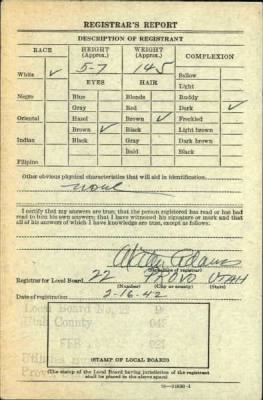 REGISTRAR'S REPORT
DESCRIPTION OF REGISTRANT
RACE HEIGHT (Approx.) WEIGHT (Approx.) COMPLEXION
5-7 145
White ✓ Sallow
EYES HAIR Light
Negro Blue Blonde Ruddy
Gray Red Dark ✓
Oriental Hazel Brown ✓ Freckled
Brown ✓ Black Light brown
Indian Black Gray Dark brown
Bald Black
Filipino
Other obvious physical characteristics that will aid in identification
none
I certify that my answers are true; that the person registered has read or has had read to him his own answers; that I have witnessed his signature or mark and that all of his answers of which I have knowledge are true, except as follows:
Adams
(Signature of registrar)
Registrar for Local Board 22 PROVO UTAH
(Number) (City or county) (State)
Date of registration 2-16-42
Local Board No. 22
Utah County
FEB
(STAMP OF LOCAL BOARD)
(The stamp of the Local Board having jurisdiction of the registrant shall be placed in the above space)